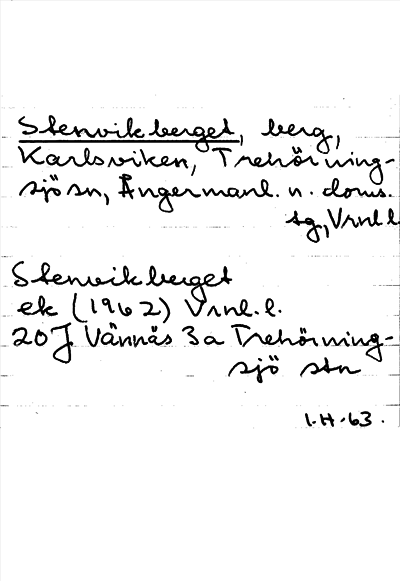 Stenvikberget, berg,
Karlsviken, Trehörning-
sjö sn, Ångermanl. n. doms.
sg, Vrnl l
Stenvikberget
ek (1962) Vrnl. l.
20J Vännäs 3a Trehörning-
sjö stn
I.H.63.